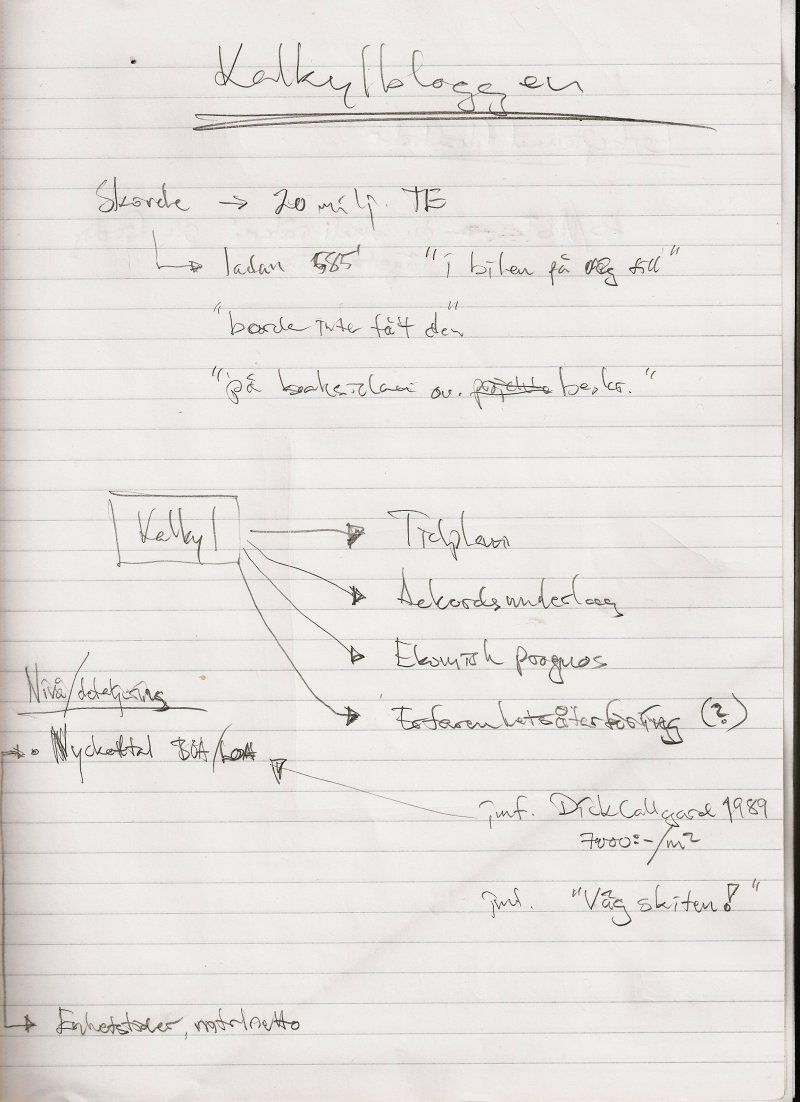 Kalkylbloggen
Skövde → 20 milj. TE
ladan 585' "i bilen på väg till"
"borde inte fått den"
"på baksidan av. beskr."
Kalkyl
Tidplan
Ackordsunderlag
Ekomisk prognos
Erfarenhetsåterföring (?)
Nivå/detaljering
• Nyckeltal BTA/LOA
jmf. Dick Callgard 1989
7000:-/m²
jmf. "Väg skiten!"
Enhetstider, netto